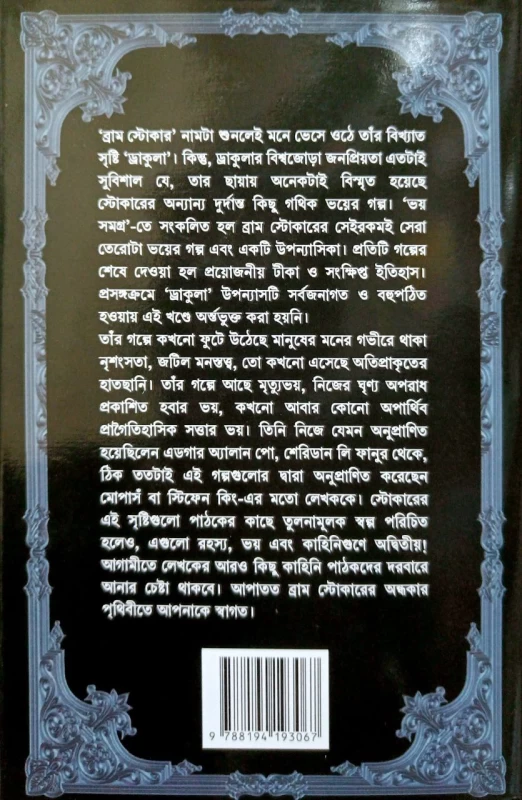 ‘ব্রাম স্টোকার’ নামটা শুনলেই মনে ভেসে ওঠে তাঁর বিখ্যাত
সৃষ্টি ‘ড্রাকুলা’। কিন্তু, ড্রাকুলার বিশ্বজোড়া জনপ্রিয়তা এতটাই
সুবিশাল যে, তার ছায়ায় অনেকটাই বিস্মৃত হয়েছে
স্টোকারের অন্যান্য দুর্দান্ত কিছু গথিক ভয়ের গল্প। ‘ভয়
সমগ্র’-তে সংকলিত হল ব্রাম স্টোকারের সেইরকমই সেরা
তেরোটা ভয়ের গল্প এবং একটি উপন্যাসিকা। প্রতিটি গল্পের
শেষে দেওয়া হল প্রয়োজনীয় টীকা ও সংক্ষিপ্ত ইতিহাস।
প্রসঙ্গক্রমে ‘ড্রাকুলা’ উপন্যাসটি সর্বজনাগত ও বহুপঠিত
হওয়ায় এই খণ্ডে অর্ন্তভুক্ত করা হয়নি।
তাঁর গল্পে কখনো ফুটে উঠেছে মানুষের মনের গভীরে থাকা
নৃশংসতা, জটিল মনস্তত্ত্ব, তো কখনো এসেছে অতিপ্রাকৃতের
হাতছানি। তাঁর গল্পে আছে মৃত্যুভয়, নিজের ঘৃণ্য অপরাধ
প্রকাশিত হবার ভয়, কখনো আবার কোনো অপার্থিব
প্রাগৈতিহাসিক সত্তার ভয়। তিনি নিজে যেমন অনুপ্রাণিত
হয়েছিলেন এডগার অ্যালান পো, শেরিডান লি ফানুর থেকে,
ঠিক ততটাই এই গল্পগুলোর দ্বারা অনুপ্রাণিত করেছেন
মোপাসঁ বা স্টিফেন কিং-এর মতো লেখককে। স্টোকারের
এই সৃষ্টিগুলো পাঠকের কাছে তুলনামূলক স্বল্প পরিচিত
হলেও, এগুলো রহস্য, ভয় এবং কাহিনিগুণে অদ্বিতীয়!
আগামীতে লেখকের আরও কিছু কাহিনি পাঠকদের দরবারে
আনার চেষ্টা থাকবে। আপাতত ব্রাম স্টোকারের অন্ধকার
পৃথিবীতে আপনাকে স্বাগত।
9 788194 193067